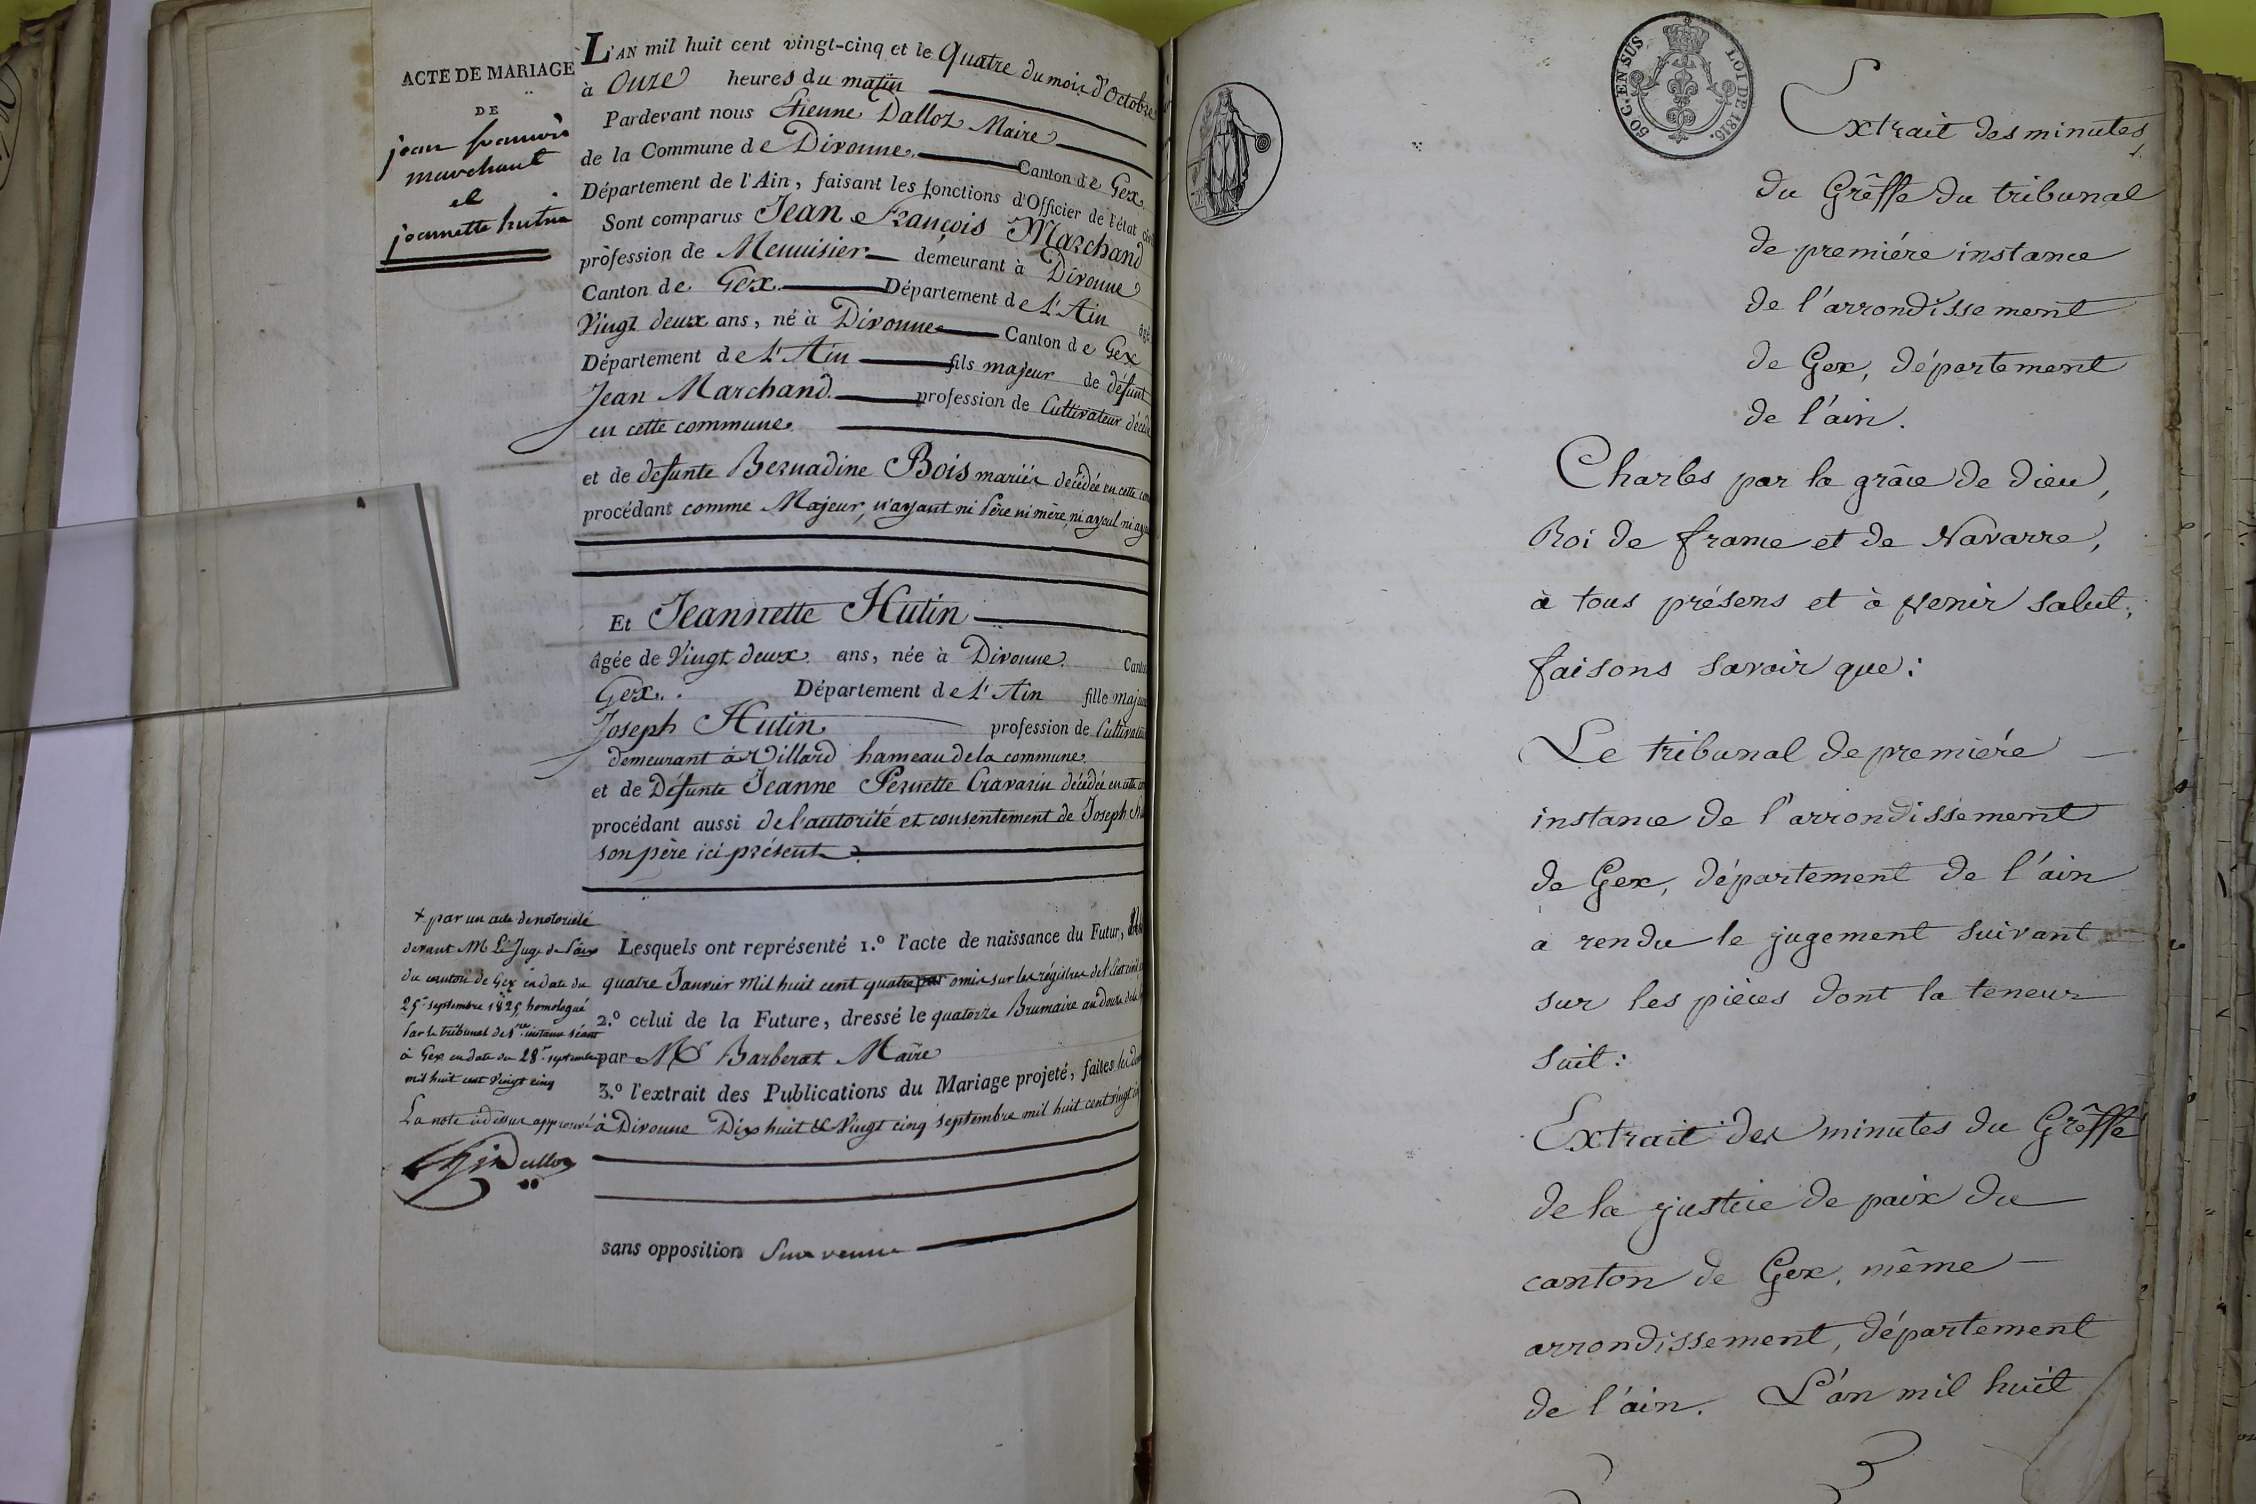 ACTE DE MARIAGE
DE
jean francois
marchant
et
jeannette hutin
L'AN mil huit cent vingt-cinq et le Quatre du mois d'Octobre
à Onze heures du matin
Pardevant nous Etienne Dalloz Maire
de la Commune de Divonne Canton de Gex
Département de l'Ain, faisant les fonctions d'Officier de l'état
Sont comparus Jean François Marchand
profession de Menuisier demeurant à Divonne
Canton de Gex Département de L'Ain âgé
Vingt deux ans, né à Divonne Canton de Gex
Département de L'Ain fils majeur de défunt
Jean Marchand profession de Cultivateur
en cette commune
et de defunte Bernadine Bois mariés decédée en cette
procédant comme Majeur, n'ayant ni Père ni mère, ni ayeul ni
Et Jeannette Hutin
âgée de Vingt deux ans, née à Divonne
Gex. Département de L'Ain fille
Joseph Hutin profession de
demeurant à Villard hameau de la commune
et de Défunte Jeanne Pernette Cravarin décédée en cette
procédant aussi de l'autorité et consentement de Joseph
son père ici présent
+ par un acte de notoriété
devant Mr Le Juge de Paix
du canton de Gex en date du
25 septembre 1825, homologué
Par le tribunal de 1re instance séant
à Gex en date du 28 septembre
mil huit cent vingt cinq
La note ci dessus approuvé
Dalloz
Lesquels ont représenté 1.º l'acte de naissance du Futur,
quatre Janvier Mil huit cent quatre par omis sur les régistres de
2.º celui de la Future, dressé le quatorze Brumaire an Douze
par Mr Barberat Maire
3.º l'extrait des Publications du Mariage projeté, faites les
à Divonne Dix huit & Vingt cinq septembre mil huit cent
sans opposition Survenue
50 C. EN SUS
LOI DE 1816.
Extrait des minutes,
du Grêffe du tribunal
de premiére instance
de l'arrondissement
de Gex, département
de l'ain.
Charles par la grâce de Dieu,
Roi de france et de Navarre,
à tous présens et à venir salut,
faisons savoir que:
Le tribunal de premiére
instance de l'arrondissement
de Gex, département de l'ain
a rendu le jugement suivant
sur les pièces dont la teneur
suit:
Extrait des minutes du Grêffe
de la justice de paix du
canton de Gex, même
arrondissement, département
de l'ain. L'an mil huit